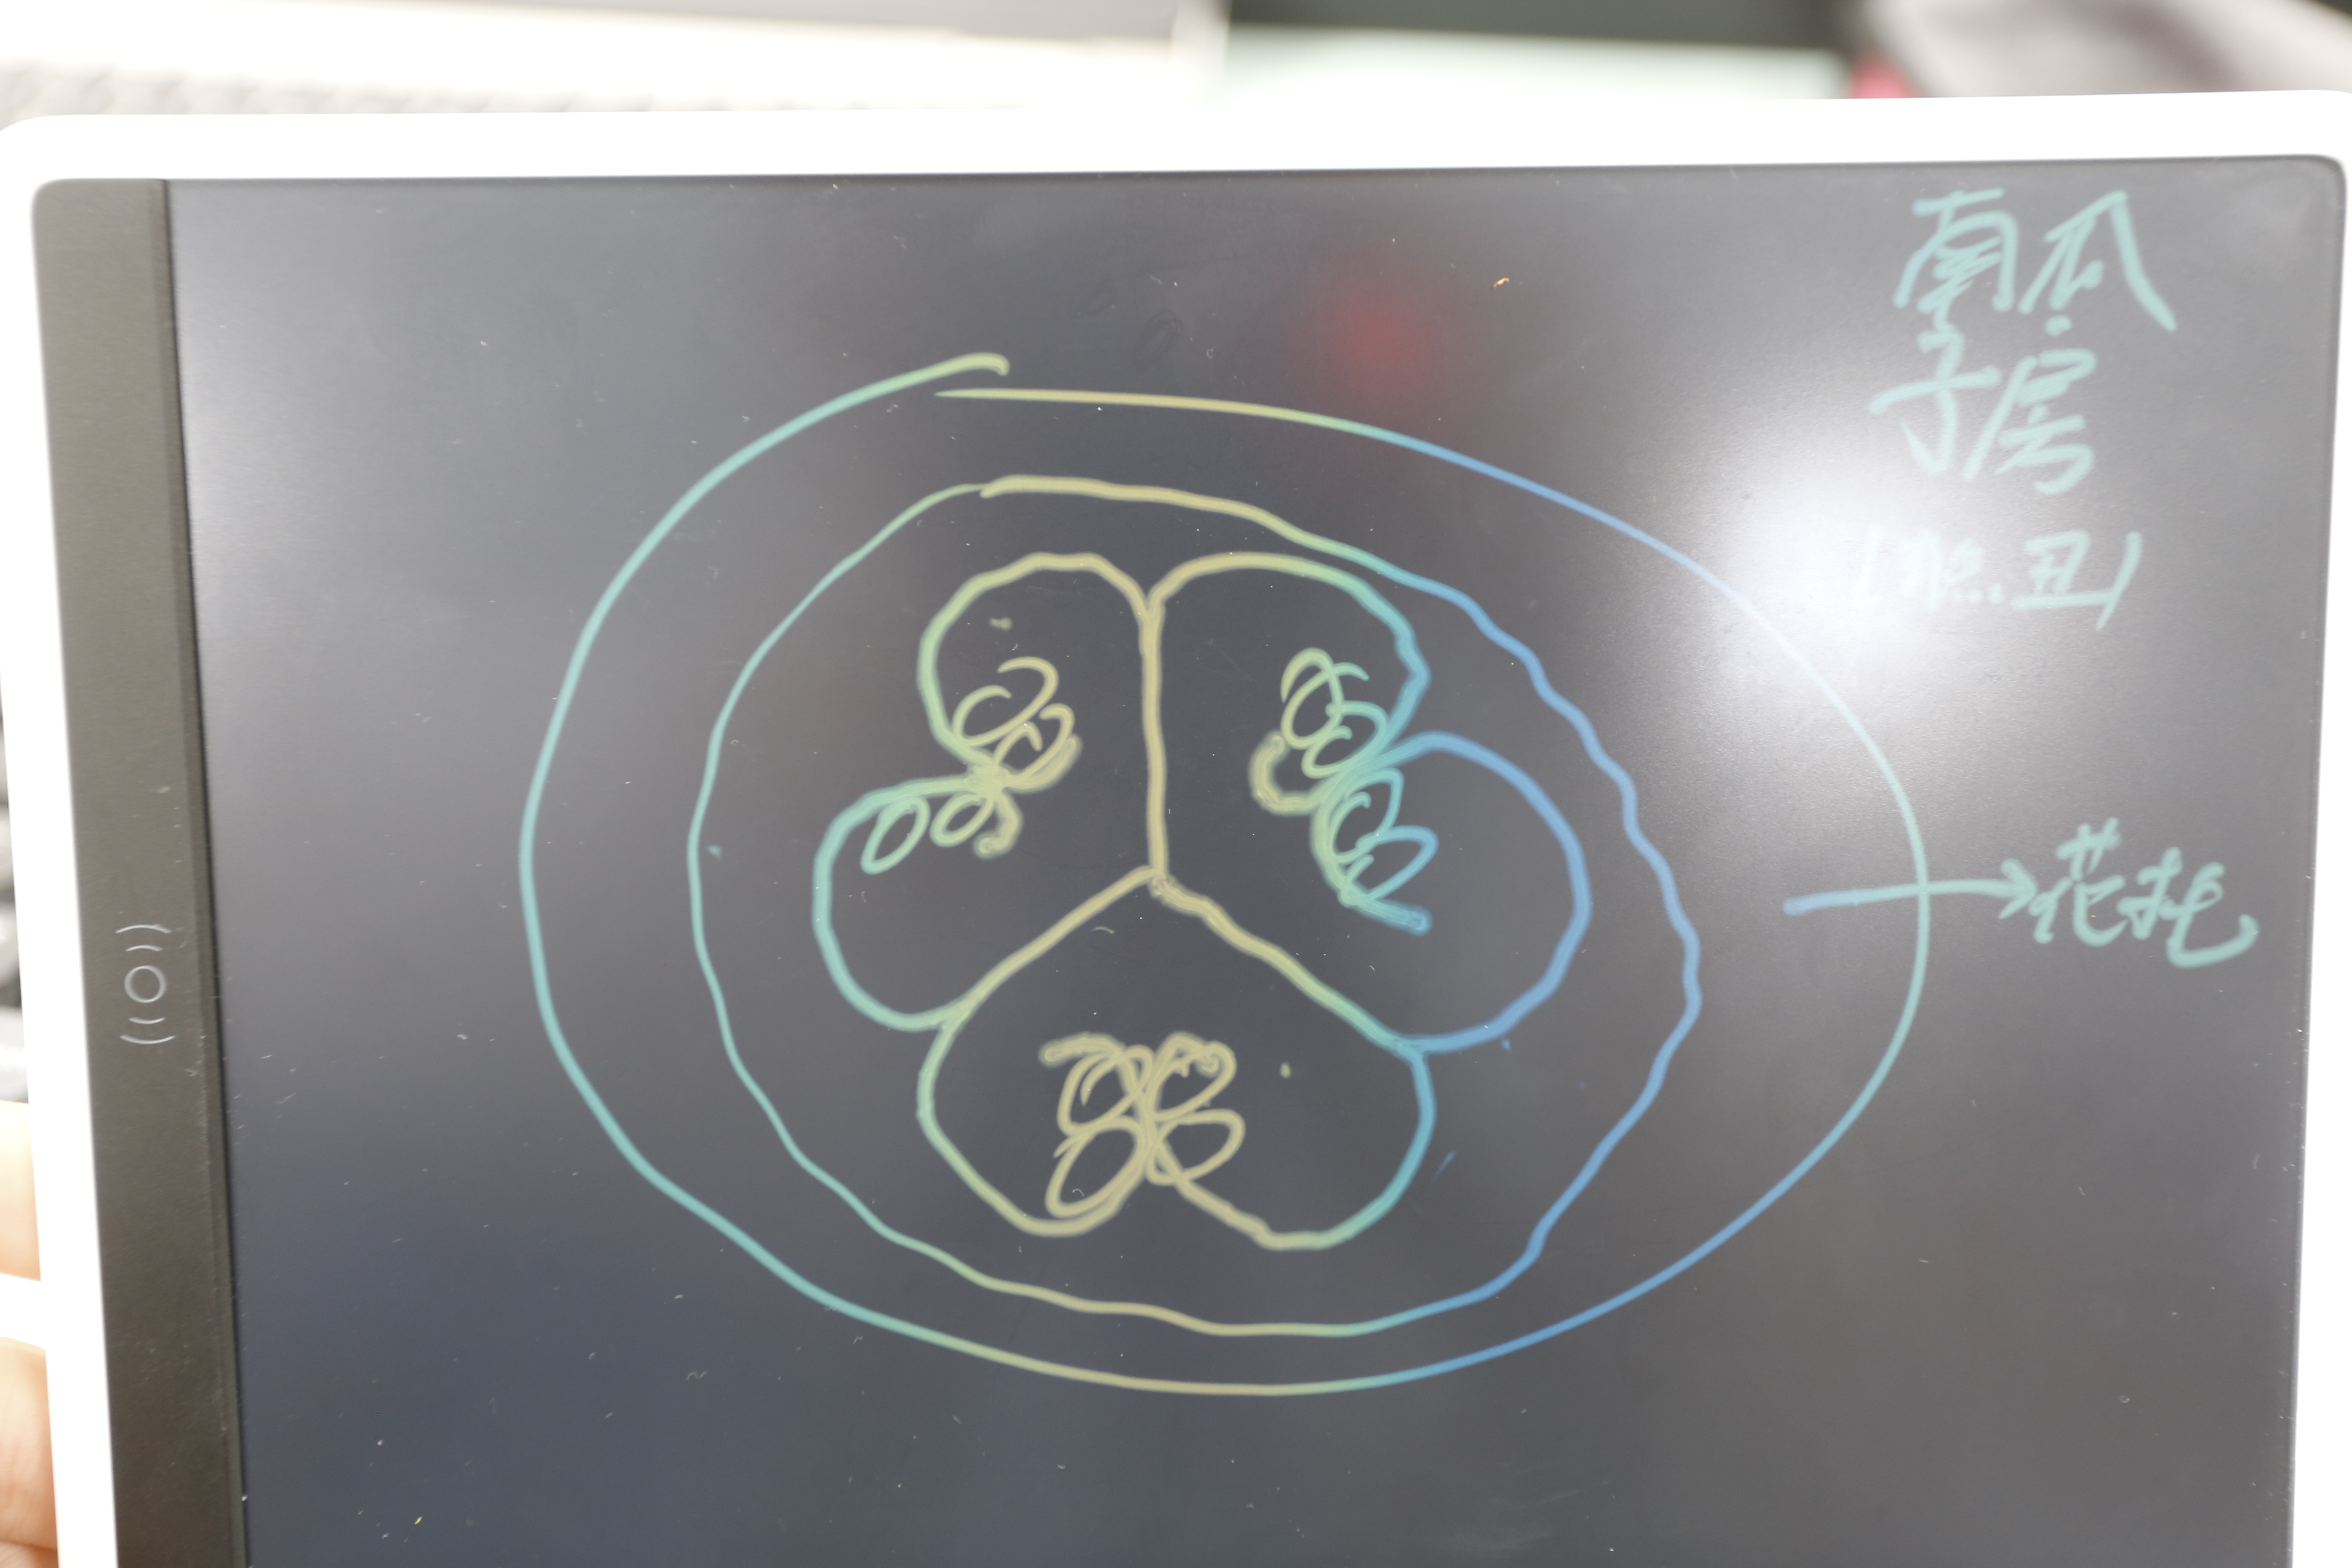 南瓜
子房
(熊丑)
花托